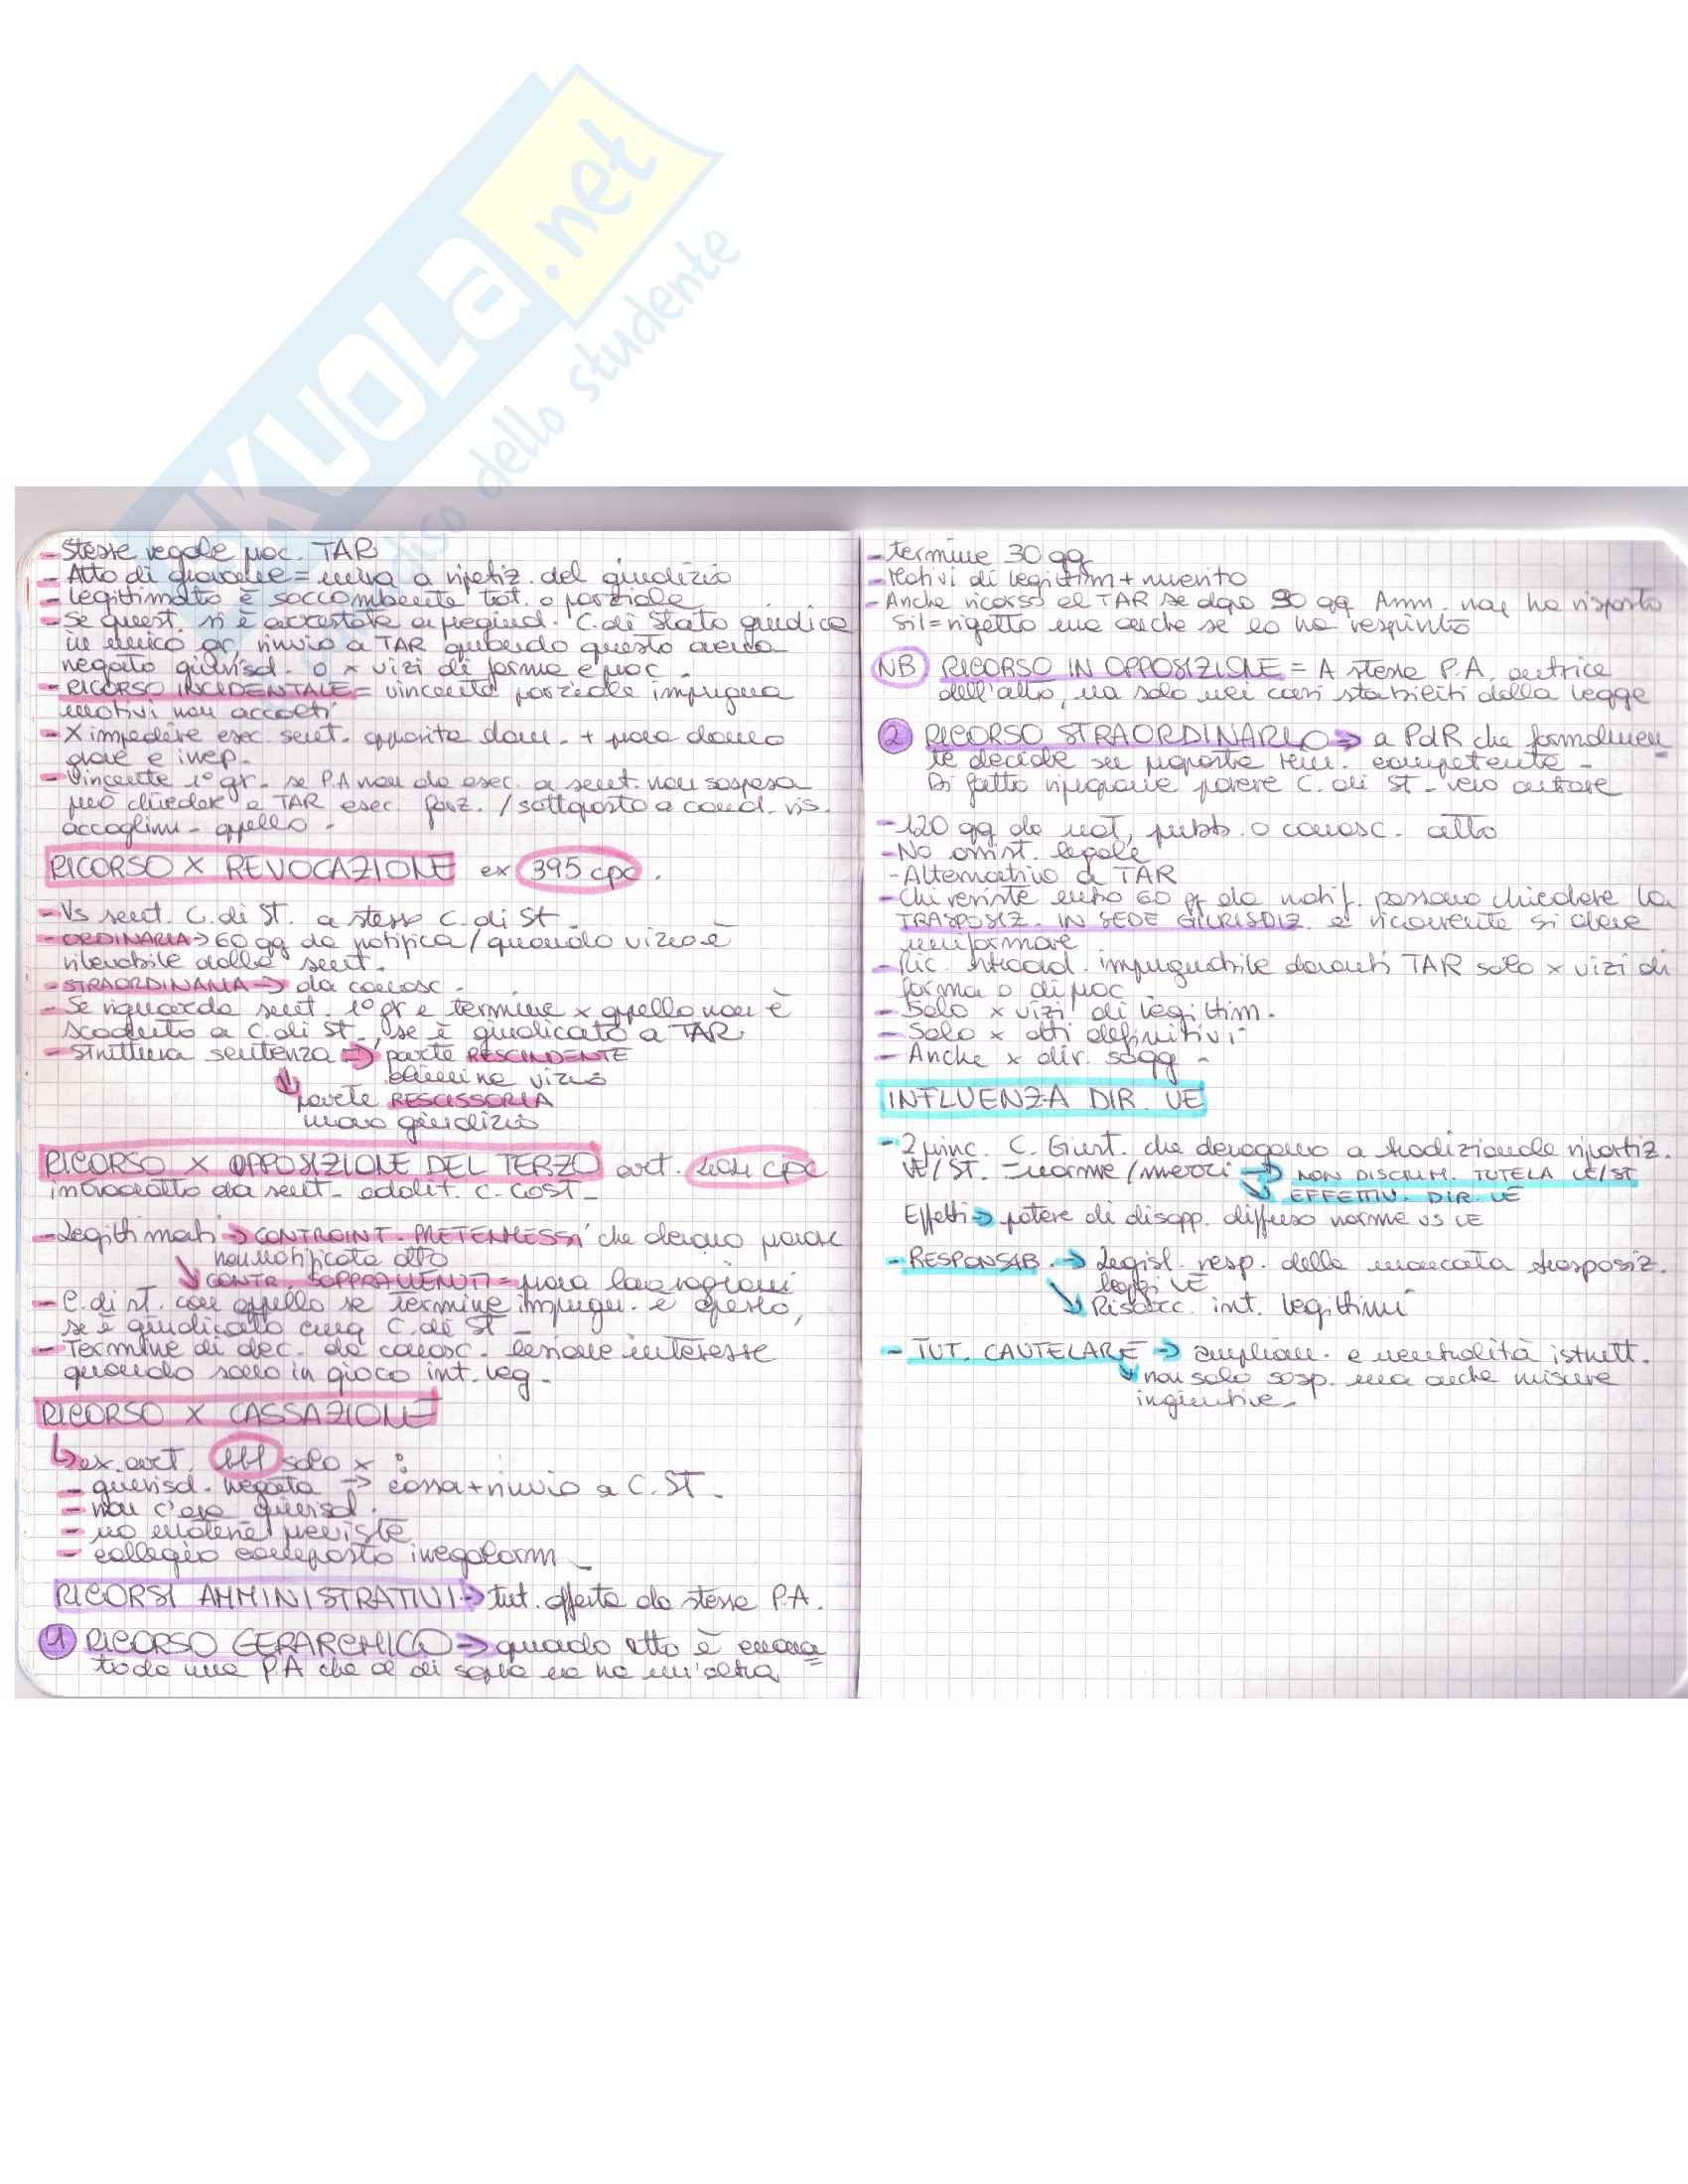 SKUOLA.net
paradiso dello studente
- Stesse regole proc. TAR
- Atto di gravame = mira a ripetiz. del giudizio
- Legittimato è soccombente tot. o parziale
- Se quest. si è arrestata a pregiud. C. di Stato giudica
in unico gr, rinvio a TAR quando questo aveva
negato giurisd. o x vizi di forma e proc.
- RICORSO INCIDENTALE = vincente parziale impugna
motivi non accolti
- X impedire esec. sent. apposita dom. + prova danno
grave e irrep.
- Vincente 1° gr. se P.A non dà esec. a sent. non sospesa
può chiedere a TAR esec. forz. / sottoposto a cond. ris.
accoglim. appello.
RICORSO X REVOCAZIONE ex 395 cpc.
- Vs sent. C. di ST. a stesso C. di St.
- ORDINARIA → 60 gg da notifica / quando vizio è
rilevabile dalla sent.
- STRAORDINARIA → da conosc.
- Se riguarda sent. 1° gr e termine x appello non è
scaduto a C. di St., se è giudicato a TAR.
- Struttura sentenza → parte RESCINDENTE
elimina vizio
parte RESCISSORIA
nuovo giudizio
RICORSO X OPPOSIZIONE DEL TERZO art. 404 cpc
introdotto da sent. addit. C. COST.
- Legittimati → CONTROINT. PRETERMESSI che devono
non notificato atto
CONTR. SOPPRAVVENUTI = prova loro ragioni
- C. di st. con appello se termine impugn. è aperto,
se è giudicato cmq C. di St.
- Termine di dec. da conosc. lesione interesse
quando sono in gioco int. leg.
RICORSO X CASSAZIONE
ex art. 111 solo x :
- giurisd. negata → cassa + rinvio a C. ST.
- non c'era giurisd.
- no materie previste
- collegio composto irregolarm.
RICORSI AMMINISTRATIVI → tut. offerta da stessa P.A.
1 RICORSO GERARCHICO → quando atto è emana
to da una P.A che al di sopra ne ha un'altra
- termine 30 gg
- Motivi di legittim + merito
- Anche ricorso al TAR se dopo 90 gg Amm. non ha risposto
sil = rigetto ma anche se lo ha respinto
NB RICORSO IN OPPOSIZIONE = A stessa P.A. autrice
dell'atto, ma solo nei casi stabiliti dalla legge
2 RICORSO STRAORDINARIO → a PdR che formalmen
te decide su proposta Min. competente.
Di fatto ripropone parere C. di St. vero autore
- 120 gg da not, pubb. o conosc. atto
- No assist. legale
- Alternativo a TAR
- Chi resiste entro 60 gg da notif. possono chiedere la
TRASPOSIZ. IN SEDE GIURISDIZ. e ricorrente si deve
uniformare
- Ric. straord. impugnabile davanti TAR solo x vizi di
forma o di proc.
- Solo x vizi di legittim.
- Solo x atti definitivi
- Anche x dir. sogg.
INFLUENZA DIR. UE
- 2 princ. C. Giust. che derogano a tradizionale ripartiz.
UE/ST. = norme / mezzi → NON DISCRIM. TUTELA UE/ST
EFFETTIV. DIR. UE
Effetti → potere di disapp. diffuso norme vs UE
- RESPONSAB. → Legisl. resp. della mancata trasposiz.
leggi UE
Risarc. int. legittimi
- TUT. CAUTELARE → ampliam. e neutralità istrutt.
non solo sosp. ma anche misure
ingiuntive.